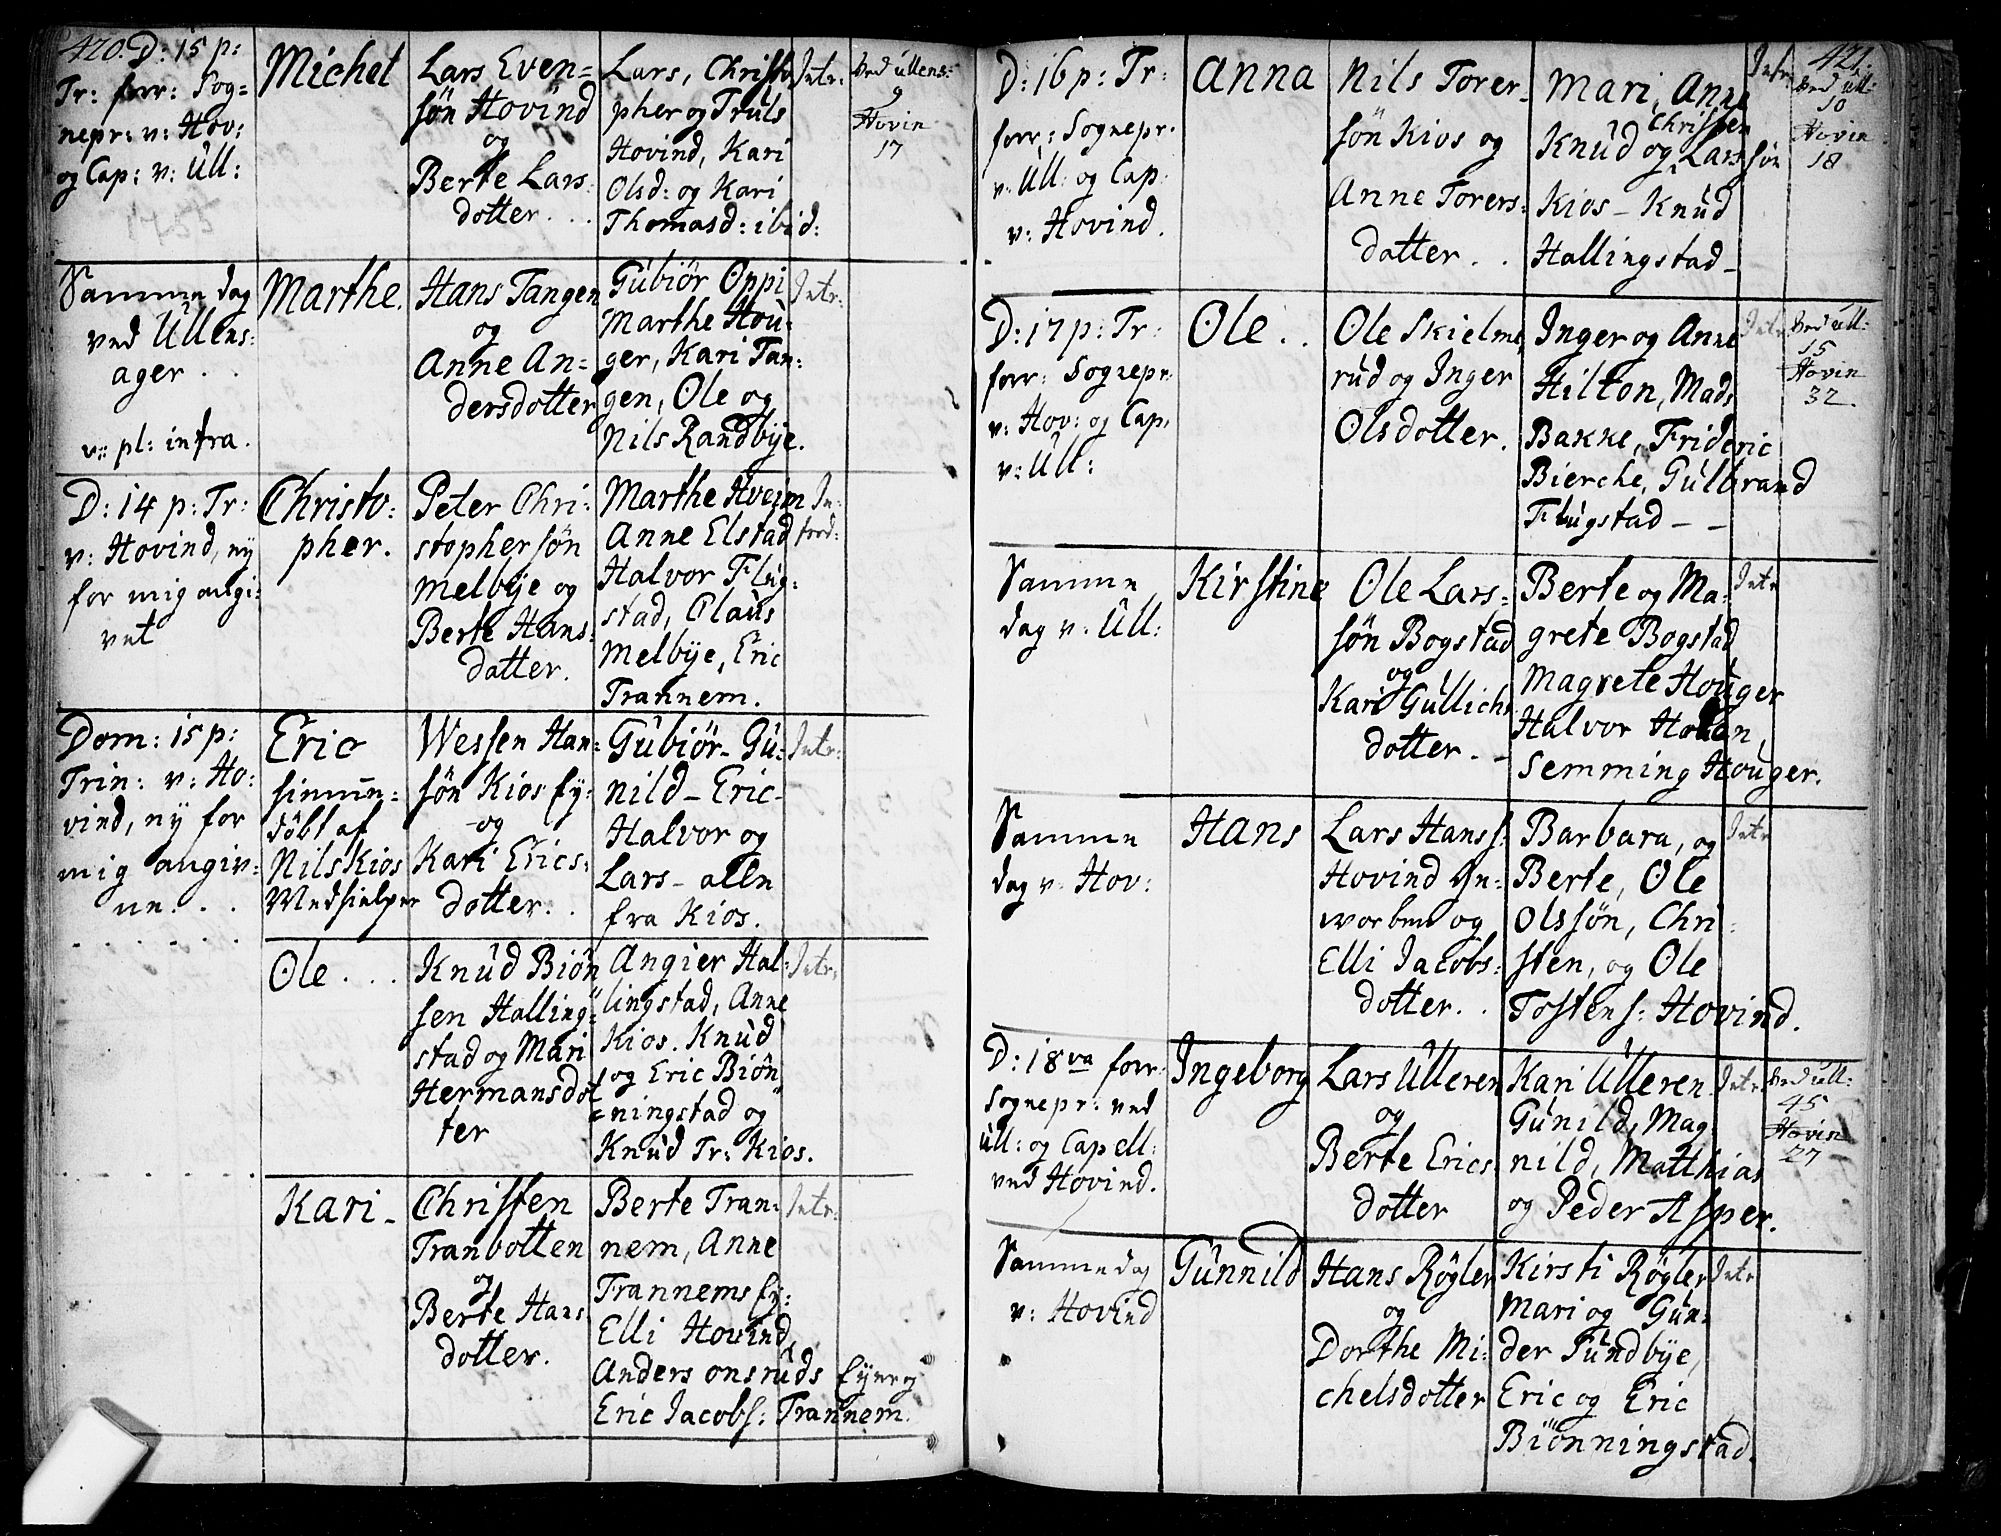 420. D: 15 p:
Tr: forr: Sog=
nepr: v: Hov:
og Cap: v: Ull:
Michel
Lars Even=
søn Hovind
og
Berte Lars=
dotter. . .
Lars, Christo
pher og Truls
Hovind, Kari
Olsd: og Kari
Thomasd: ibid:
Intr:
Ved Ullens:
9
Hovin
17
Samme dag
ved Ullens:
ager . .
v: pl: infra.
Marthe.
Hans Tangen
og
Anne An=
dersdotter
Gubiør Oppi
Marthe Hou=
ger, Kari Tan=
gen, Ole og
Nils Randbÿe.
Intr:
D: 14 p: Tr:
v: Hovind, nÿ
for mig angi=
vet
Christo=
pher.
Peter Chri=
stophersøn
Melbÿe og
Berte Hans=
datter.
Marthe Hveim
Anne Elstad
Halvor Flug=
stad, Claus
Melbÿe, Eric
Trannem.
In=
trod:
Dom: 15 p:
Trin: v: Ho=
vind, nÿ for
mig angiv=
ne. . .
Eric
hiemme=
døbt af
Nils Kios
Medhielper
Wessen Han=
søn Kios Ey:
og
Kari Erics=
dotter. .
Gubiør - Gu=
nild - Eric -
Halvor og
Lars - alle
fra Kios.
Intr:
Ole . . .
Knud Biøn
sen Halling=
stad og Mari
Hermansdot
ter
Angier Hal=
lingstad, Anne
Kios. Knud
og Eric Biøn
=ningstad og
Knud Tr: Kios.
Intr:
Kari -
Christen
Tranbotten
og
Berte Hans
dotter.
Berte Tran=
nem, Anne
Trannems Ey:
Elli Hovind,
Anders onsruds Eyne og
Eric Jacobs: Trannem.
Intr:
421.
D: 16 p: Tr:
forr: Sognepr.
v: Ull: og Cap:
v: Hovind.
Anna
Nils Torer=
søn Kios og
Anne Torers=
datter . .
Mari, Anne
Christen
Knud og Lars søn
Kios - Knud
Hallingstad -
Intr:
Ved Ull:
10
Hovin
18
D: 17 p: Tr:
forr: Sognepr.
v: Hov: og Cap.
v: Ull:
Ole . .
Ole Skielme
rud og Inger
Olsdotter.
Inger og Anne
Hilton, Mads
Bakke, Frideric
Bierche, Gulbrand
Flugstad - -
Intr
Ved Ull:
15
Hovin
32.
Samme
dag v: Ull:
Kirstine
Ole Lars=
søn Bogstad
og
Kari Gullichs
dotter . -
Berte og Ma=
grete Bogstad
Magrete Houger
Halvor
Semming Houger.
Intr
Samme
dag v: Hov:
Hans
Lars Hanss:
Hovind
og
Elli Jacobs=
dotter. .
Barbara, og
Berte, Ole
Olssøn, Chri=
sten, og Ole
Tostens: Hovind.
Intr
D: 18va forr
Sognepr: ved
Ull: og Capell:
ved Hovind.
Ingeborg
Lars Ulleren
og
Berte Erics
dotter
Kari Ulleren
Gunild, Mag=
nild, Matthias
og Peder Asper.
Intr
Ved Ull:
45
Hovin
27
Samme dag
v: Hovind
Gunnild
Hans Røgler
og
Dorthe Mi=
chelsdotter
Kirsti Røgler
Mari og Gun=
der Sundbÿe,
Eric og Eric
Biønningstad.
Intr